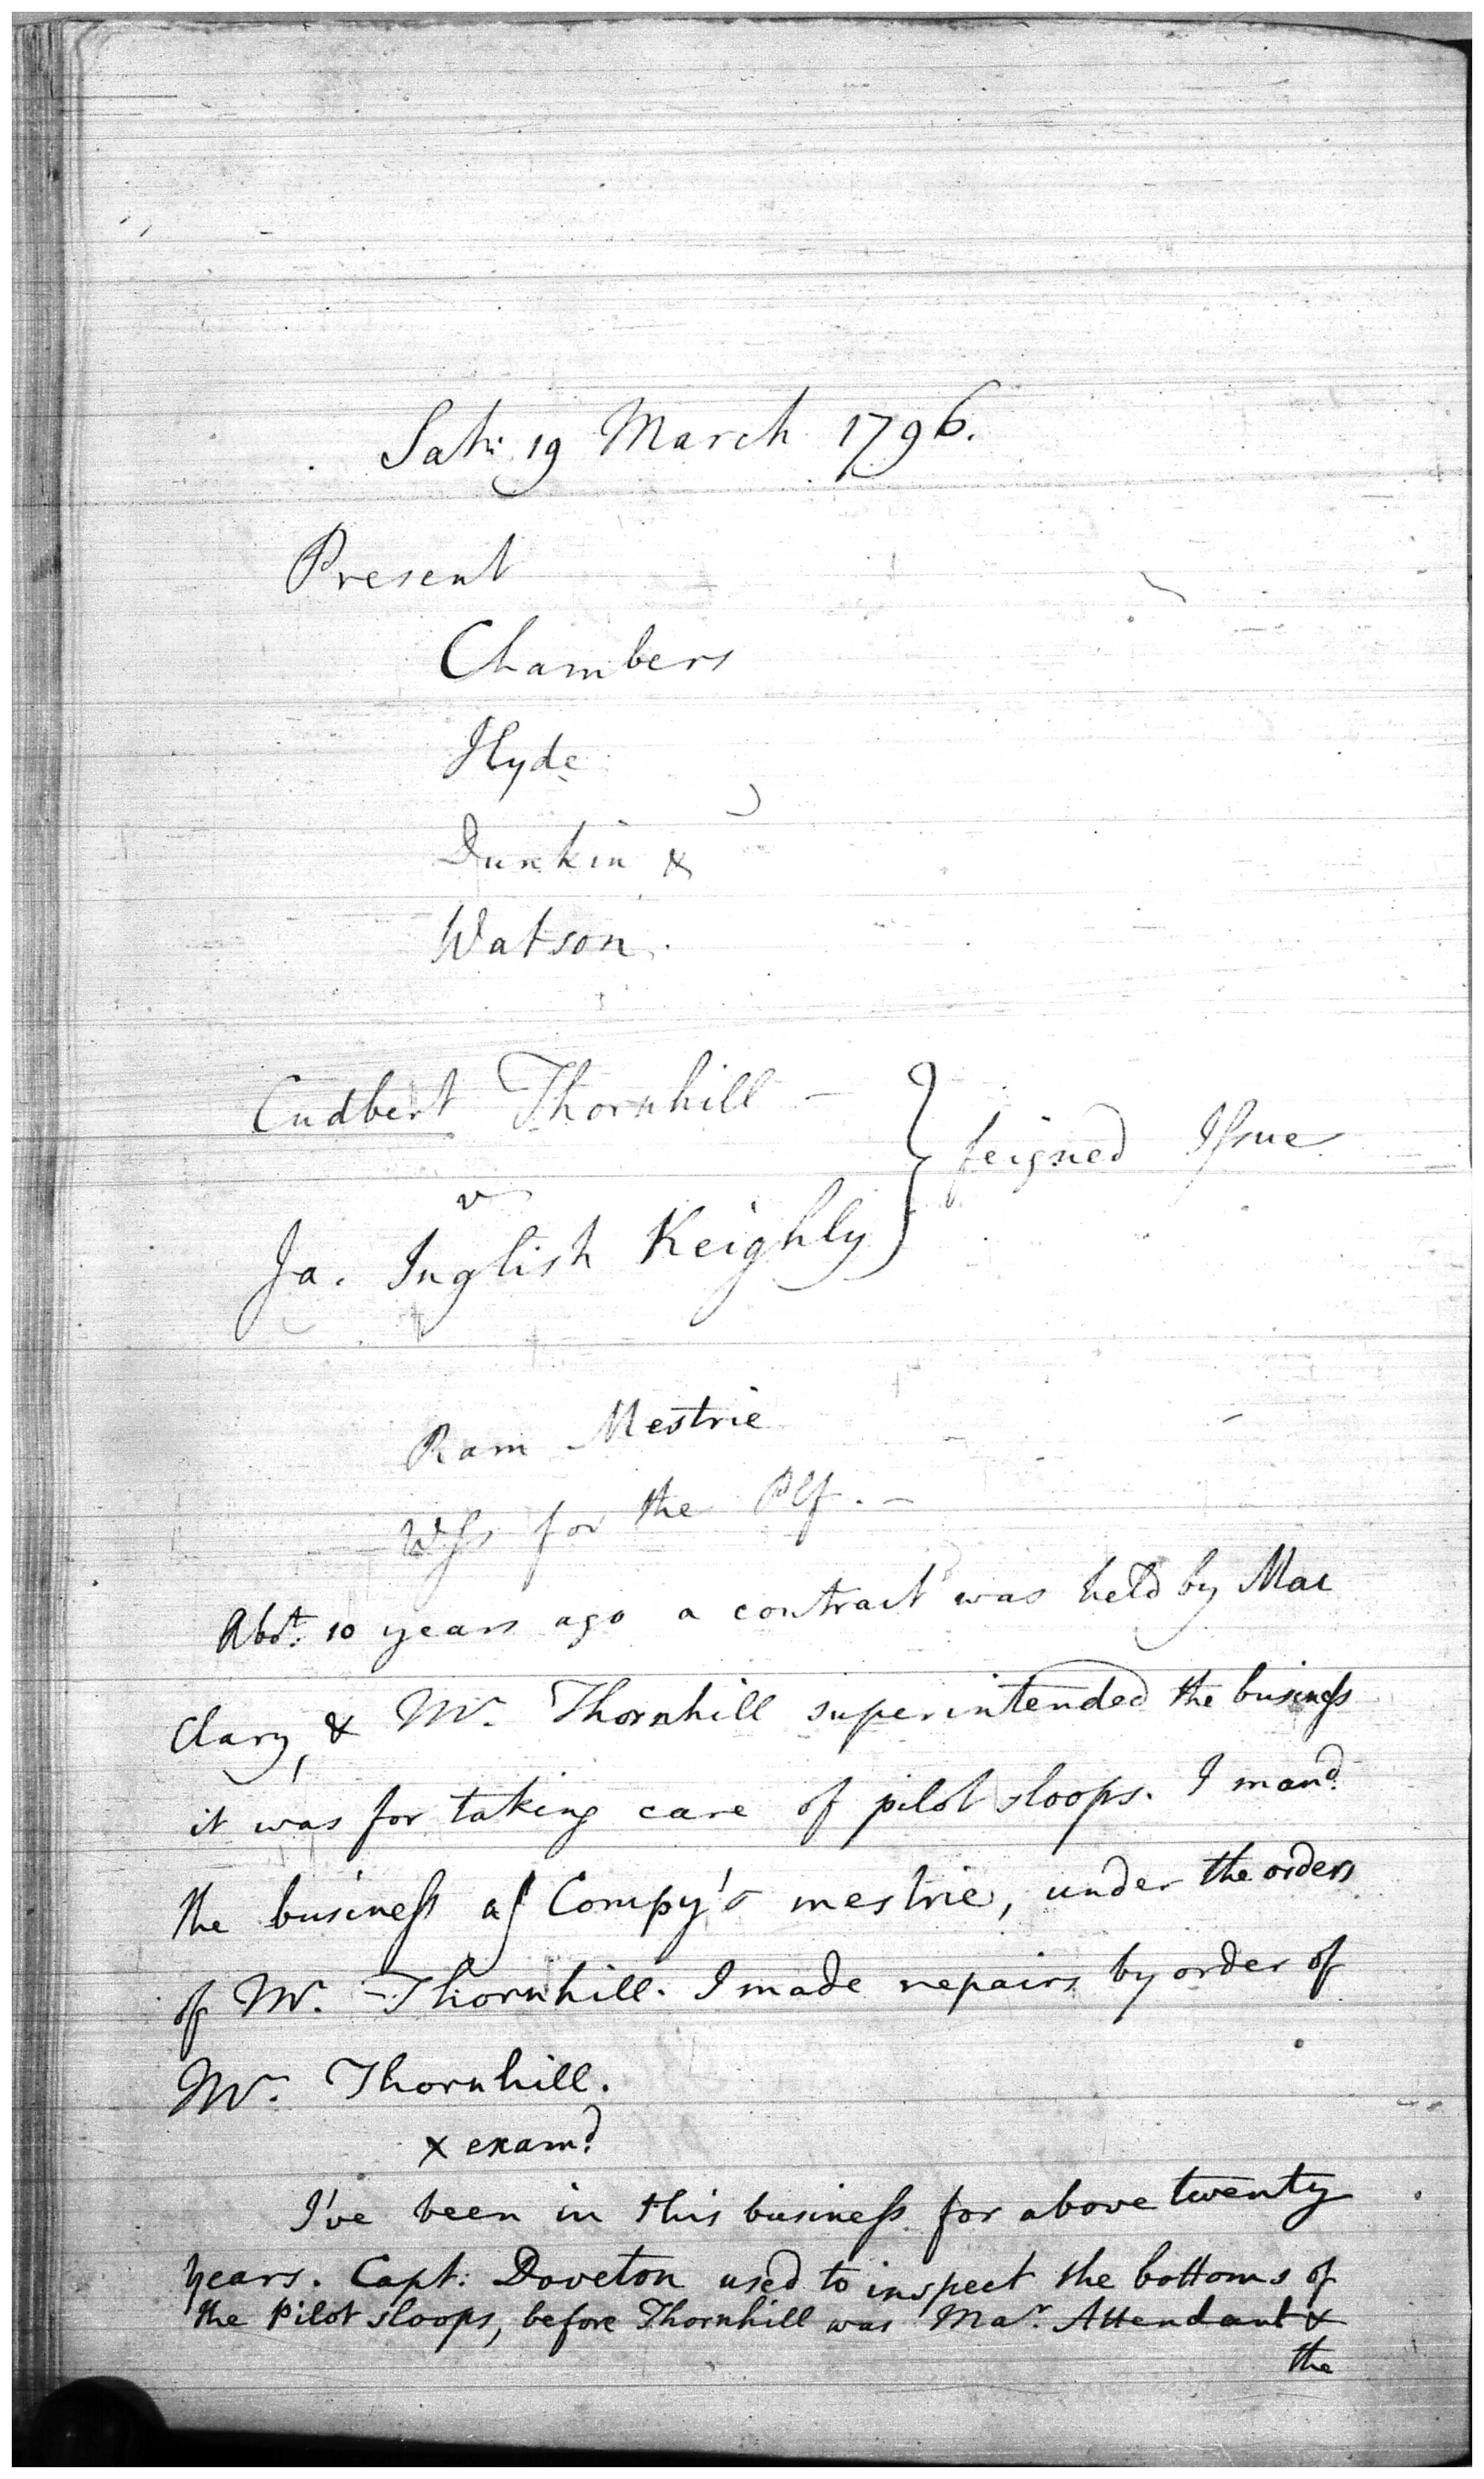 Sat: 19 March 1796.
Present
Chambers
Hyde
Dunkin &
Watson.
Cudbert Thornhill –
v
Ja. Inglish Keighly } feigned Issue
Ram Mestrie
Wss for the Plf. –
Abt. 10 years ago a contract was held by Mac
Clary, & Mr. Thornhill superintended the business
it was for taking care of pilot sloops. I mand
the business as Compy's mestrie, under the orders
of Mr. Thornhill. I made repairs by order of
Mr. Thornhill.
x examd
I've been in this business for above twenty
years. Capt: Doveton used to inspect the bottoms of
the Pilot sloops, before Thornhill was Mar. Attendant &
the